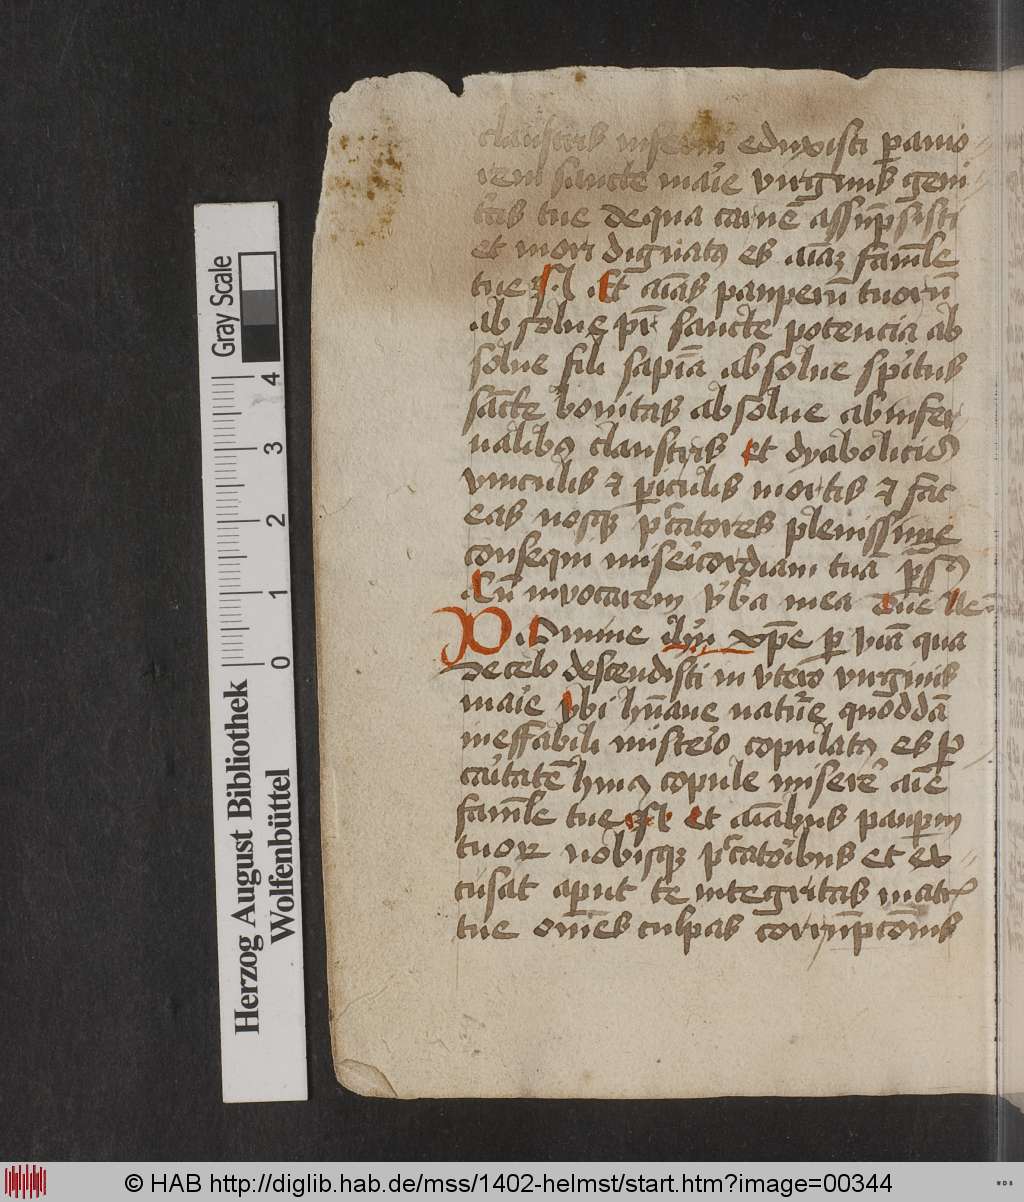 claustris inferni eduxisti ꝑ amo
rem sancte maīe virginis geni
tris tue de qua carnē assūpsisti
et mori dignatꝰ es aīaꝫ famle
tue N Et aīas pauperū tuorū
absolue pr̄ sancte potencia ab
solue fili sapiā absolue spūtus
sāte bonitas absolue ab infer
nalibꝰ claustris et dyabolicis
vinculis ⁊ ꝑiculis mortis ⁊ fac
eas nosqꝫ pctatores plenissime
consequi misericordiam tuā
Cū invocarem v̄ba mea
O Domine ihū xp̄e ꝑ viā qua
de celo descendisti in vtero virginis
maīe vbi hūane nature quoddā
ineffabili misterio copulatꝰ es ꝑ
caītatē huiꝰ copule miserē aīe
famle tue et aīabus pauꝑm
tuoꝝ nobisqꝫ pctatoribus et ex
cusat aput te integritas matr̄
tue om̄es culpas corrūpcōnis
Gray Scale
4
3
2
1
0
Herzog August Bibliothek
Wolfenbüttel
© HAB http://diglib.hab.de/mss/1402-helmst/start.htm?image=00344